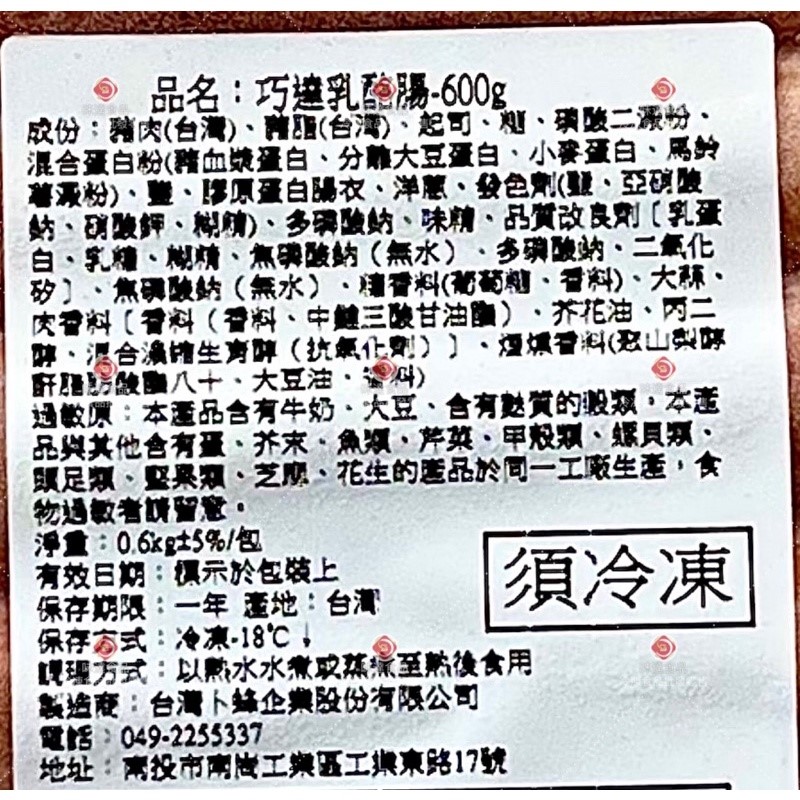 品名：巧達乳酪腸-600g
成份：豬肉(台灣)、豬脂(台灣)、起司、糖、磷酸二澱粉、
混合蛋白粉(豬血漿蛋白、分離大豆蛋白、小麥蛋白、馬鈴
薯澱粉)、鹽、膠原蛋白腸衣、洋蔥、發色劑(鹽、亞硝酸
鈉、硝酸鉀、糊精)、多磷酸鈉、味精、品質改良劑［乳蛋
白、乳糖、糊精、焦磷酸鈉（無水）、多磷酸鈉、二氧化
矽］、焦磷酸鈉（無水）、糖香料(葡萄糖、香料)、大蒜、
肉香料［香料（香料、中鏈三酸甘油酯）、芥花油、丙二
醇、混合濃縮生育醇（抗氧化劑）］、煙燻香料(聚山梨醇
酐脂肪酸酯八十、大豆油、香料)
過敏原：本產品含有牛奶、大豆、含有麩質的穀類，本產
品與其他含有蛋、芥末、魚類、芹菜、甲殼類、螺貝類、
頭足類、堅果類、芝麻、花生的產品於同一工廠生產，食
物過敏者請留意。
淨重：0.6kg±5%/包
有效日期：標示於包裝上
保存期限：一年 產地：台灣
保存方式：冷凍-18℃↓
調理方式：以熱水水煮或蒸煮至熟後食用
製造商：台灣卜蜂企業股份有限公司
電話：049-2255337
地址：南投市南崗工業區工業東路17號
須冷凍